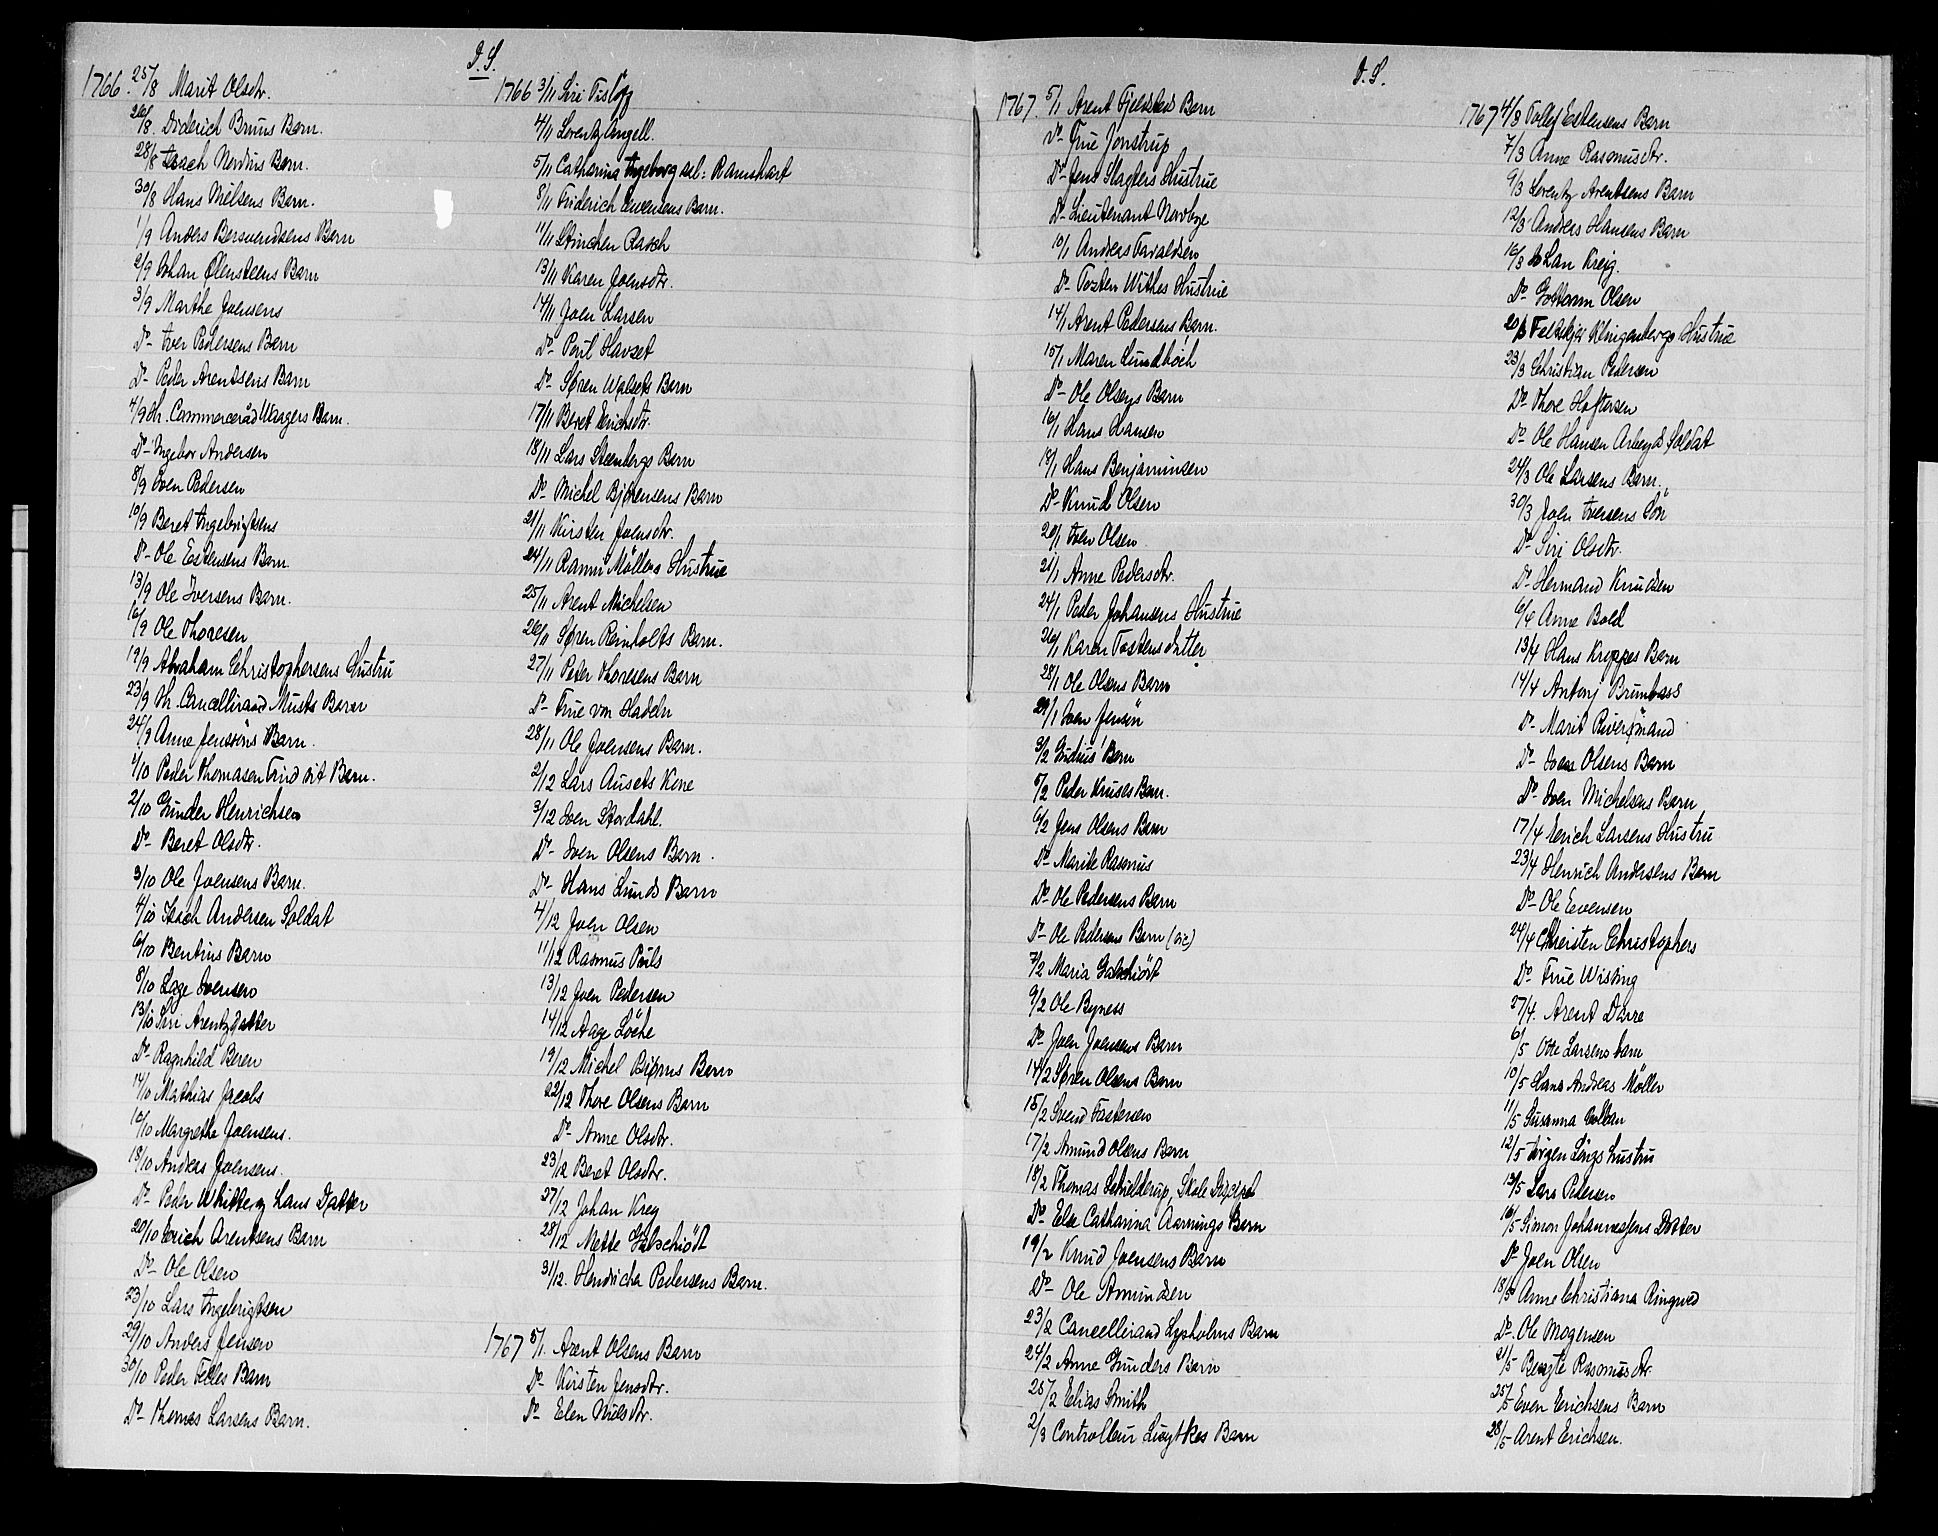 D. S.
1766. 25/8 Marit Olsdtr.
26/8 Diderich Bruus Barn.
28/8 Isach Nordius Barn.
30/8 Hans Nilsens Barn.
1/9 Anders Bersvendsens Barn
2/9 Johan Ølensteens Barn
3/9 Marthe Joensens
Do- Iver Pedersens Barn
Do- Peder Arentsens Barn
4/9 Hr. Commerceråd Waagers Barn.
Do- Ingebor Andersen
8/9 Sven Pedersen
10/9 Beret Ingebrigtsens
Do- Ole Estensens Barn.
13/9 Ole Iversens Barn.
16/9 Ole Thoresen
19/9 Abraham Christophersens Hustru
23/9 Hr. Cancelliraad Musts Barn
24/9 Anne Jensøns Barn.
1/10 Peder Thomasen Trud sit Barn.
2/10 Gunder Henrichsen
Do- Beret Olsdtr.
3/10 Ole Joensens Barn.
4/10 Isach Andersen Soldat
6/10 Bentrus Barn
8/10 Lage Svensen
13/10 Siri Arentzdatter
Do- Ragnhild Beren
14/10 Mathias Jacobs
16/10 Margrethe Joensens.
18/10 Andreas Joensens.
Do- Peder Whitte og Lans Datter
20/10 Erich Arentsens Barn
Do- Ole Olsen
23/10 Lars Ingebrigtsen
29/10 Anders Jensen
30/10 Peder Telles Barn
Do- Thomas Larsens Barn.
1766 3/11 Siri Tisløf
4/11 Lorentz Angell.
5/11 Catharina Ingeborg sal: Ramshart
8/11 Friderich Evensens Barn.
11/11 Stinchen Rasch
13/11 Karen Joensdtr.
14/11 Joen Larsen
Do- Poul Havset
Do- Søren Walsets Barn
17/11 Beret Erichsdtr.
18/11 Lars Steenbergs Barn
Do- Michel Bjørensens Barn
21/11 Kirsten Joensdtr.
24/11 Rasmi Möllers Hustrue
25/11 Arent Michelsen
26/11 Søren Reinholts Barn.
27/11 Peter Thoresens Barn
Do- Frue von Hadeln
28/11 Ole Joensens Barn.
2/12 Lars Ausets Kone
3/12 Sven Stordahl.
Do- Sven Olsens Barn.
Do- Hans Lunds Barn
4/12 Joen Olsen
11/12 Rasmus Pouls
13/12 Joen Pedersen
14/12 Aage Löche
19/12 Michel Biørns Barn
22/12 Thore Olsens Barn
Do- Anne Olsdtr.
23/12 Beret Olsdtr.
27/12 Johan Kreg
28/12 Mette Galschiödt
31/12. Hendricha Pedersens Barn.
1767 5/1. Arent Olsens Barn
Do- Kirsten Jensdtr.
Do- Elen Nielsdtr.
D. S.
1767. 5/1 Arent Fjeldsteds Barn
Do- Frue Jonstrup
Do- Jens Slagters Hustrue
Do- Lieutenant Nordbye
10/1 Andreas Tarvaldsen
Do- Tosten Withes Hustrue
14/1 Arent Pedersens Barn.
15/1 Maren Lundhöch
Do- Ole Olsens Barn
16/1 Hans Hansen
18/1 Hans Benjaminsen
Do- Knud Olsen
20/1 Iver Olsen
21/1 Anne Pedersdtr.
24/1 Peder Johansens Hustrue
26/1 Karen Tostensdatter
28/1 Ole Olsens Barn
29/1 Sven Jensön
3/2 Gudius' Barn
5/2 Peder Kruses Barn.
6/2 Jens Olsens Barn
Do- Marite Rasmus
Do- Ole Pedersens Barn
Do- Ole Pedersens Barn (sic)
7/2 Maria Galschiödt
9/2 Ole Byness
Do- Joen Joensens Barn
14/2 Søren Olsens Barn
15/2 Svend Tostensen
17/2 Amund Olsens Barn
18/2 Thomas Schielderup, Skole Discipel
Do- Else Catharina Aarnings Barn
19/2 Knud Joensens Barn
Do- Ole Amundsen
23/2 Cancelliraad Lysholms Barn
24/2 Anne Gunders Barn
25/2 Elias Smith
2/3 Controlleur Lieytkes Barn
1767 4/3 Tollef Estensens Barn
7/3 Anne Rasmusdtr.
9/3 Lorentz Arentsens Barn
12/3 Andreas Hansens Barn
16/3 Lan Krejg.
Do- Guttorm Olsen
20/3 Feltskjer Klingenbergs Hustrue
23/3 Christian Pedersen
Do- Thore Haftorsen
Do- Ole Hansen Arbeyds Soldat
24/3 Ole Larsens Barn.
30/3 Joen Iversens Sön
Do- Siri Olsdtr.
Do- Hermand Knudsen
6/4 Anne Bold
13/4 Hans Kroppes Barn
14/4 Antonj Brumbass
Do- Marit Riversmand
Do- Sven Olsens Barn
Do- Sven Michelsens Barn
17/4 Erich Larsens Hustru
23/4 Henrich Andersens Barn
Do- Ole Evensen
24/4 Chiersten Christophers
Do- Frue Wisting
27/4. Arent Darre
6/5 Otte Larsens barn
10/5 Hans Andreas Möller
11/5 Susanna Voltan
12/5 Jørgen Lings hustru
13/5 Lars Pedersen
16/5 Simon Johannesens Datter
Do- Joen Olsen
18/5 Anne Christiana Ringved
Do- Ole Mogensen
21/5 Bengte Rasmusdtr.
25/5 Even Erichsens Barn
28/5 Arent Erichsen.